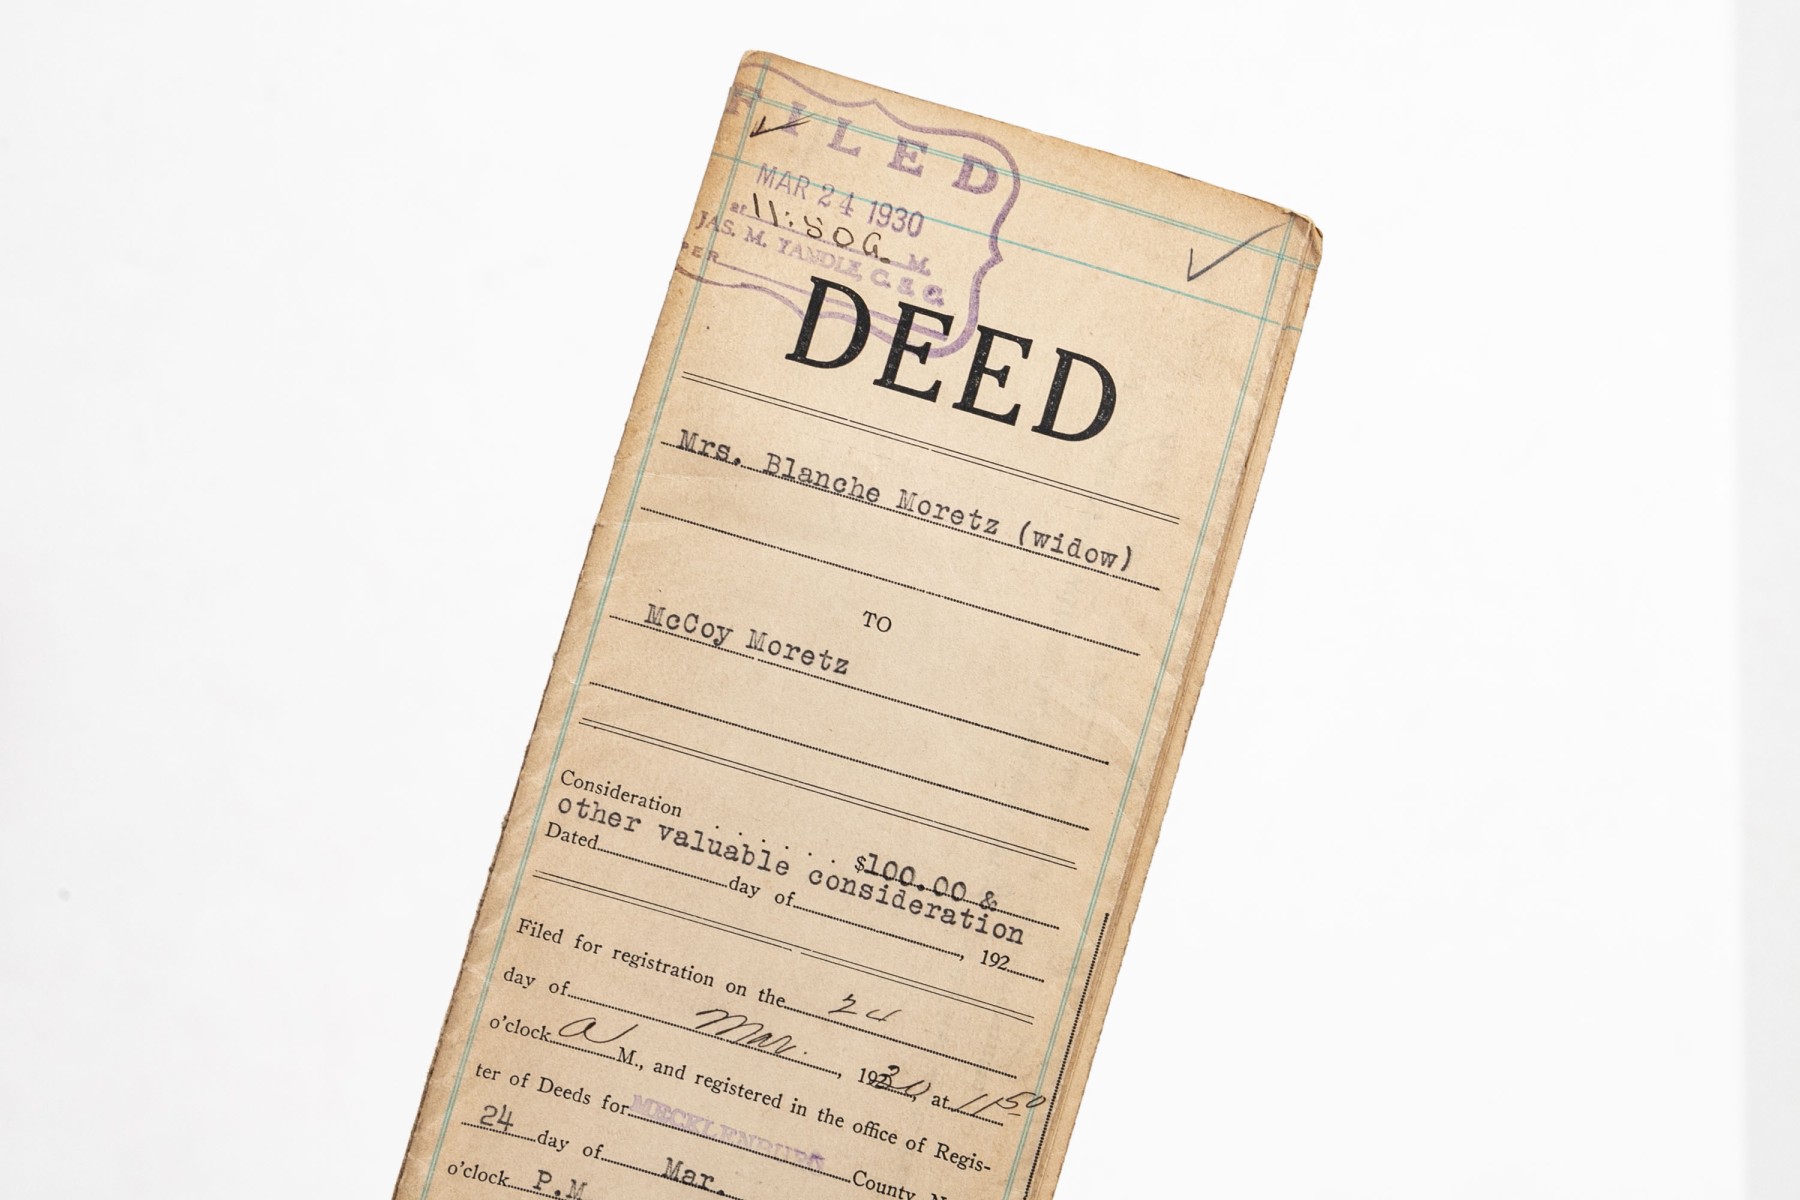 FILED
MAR 24 1930
at 11:50 A. M.
JAS. M. YANDLE, C. S. C.
PER
DEED
Mrs. Blanche Moretz (widow)
TO
McCoy Moretz
Consideration . . . . . . $100.00 &
other valuable consideration
Dated day of , 192
Filed for registration on the 24
day of Mar. , 1930, at 11 50
o'clock A M., and registered in the office of Regis-
ter of Deeds for MECKLENBURG County, N
24 day of Mar.
o'clock P.M